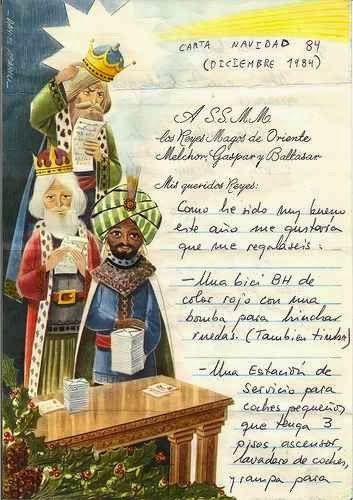 CARTA NAVIDAD 84
(DICIEMBRE 1984)
A S.S.M.M.
los Reyes Magos de Oriente
Melchor, Gaspar y Baltasar
Mis queridos Reyes:
Como he sido muy bueno
este año me gustaría
que me regalaseis:
-Una bici BH de
color rojo con una
bomba para hinchar
ruedas. (También timbre)
-Una Estación de
Servicio para
coches pequeños,
que tenga 3
pisos, ascensor,
lavadero de coches,
y rampa para